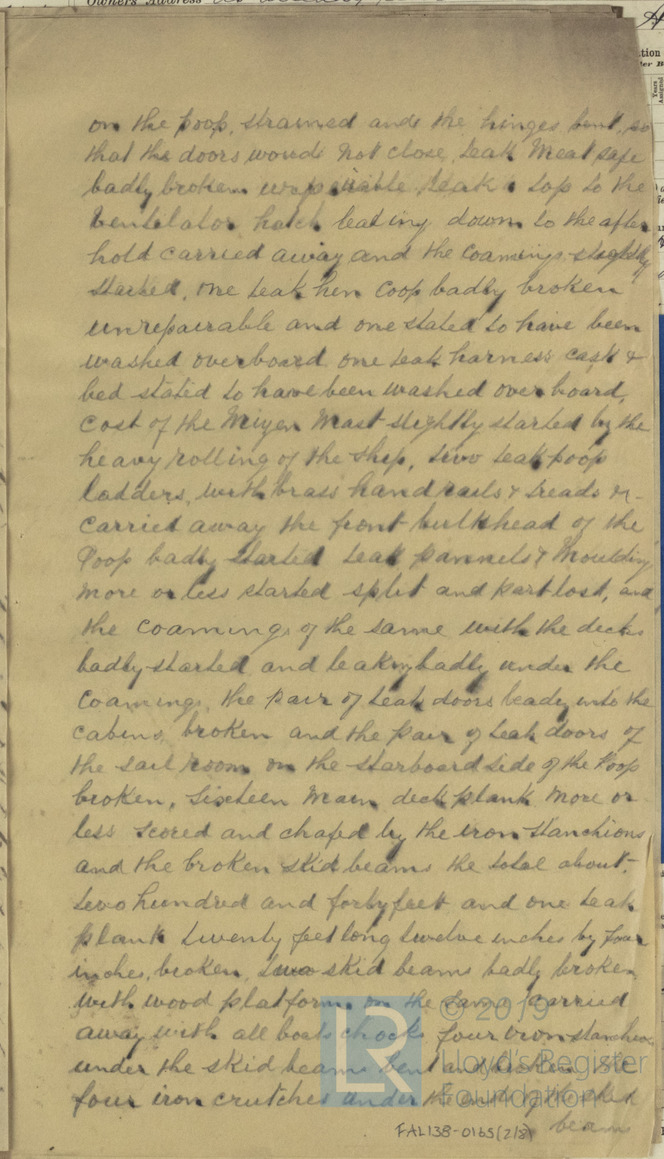 Owners' Address
on the poop, strained and the hinges bent, so
that the doors would not close, teak meat safe
badly broken teak top to the
Ventilator hatch leading down to the after
hold carried away and the coamings slightly
started, one teak hen coop badly broken
unrepairable and one stated to have been
washed overboard one teak harness cask &
bed stated to have been washed overboard,
Coat of the Mizen Mast slightly started by the
heavy rolling of the ship, two teak poop
ladders, with brass hand rails & treads &-
carried away the front bulkhead of the
Poop badly started teak pannels & Moulding
more or less started split and part lost, and
the coamings of the same with the decks
badly started and leaking badly under the
Coamings, the pair of teak doors leadg into the
Cabins, broken and the pair of teak doors of
the sail room on the starboard side of the Poop
broken, Sixteen Main deck plank more or
less scored and chafed by the iron stanchions
and the broken skid beams the total about
two hundred and forty feet and one teak
plank twenty feet long twelve inches by four
inches, broken, two skid beams badly broken
with wood platform on the same carried
away with all boats chocks four iron stanchions
under the skid beams bent and broken
four iron crutches under the ends of the skid
beams
© 2019
Lloyd's Register
Foundation
LR
FAL138-0165(2/8)